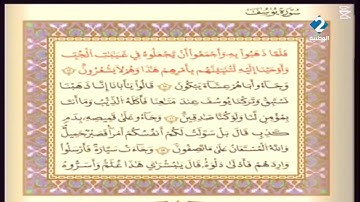 سورة يوسف
الوطنية 2
فَلَمَّا ذَهَبُوا۟ بِهِۦ وَأَجْمَعُوٓا۟ أَن يَجْعَلُوهُ فِى غَيَٰبَتِ ٱلْجُبِّ
وَأَوْحَيْنَآ إِلَيْهِ لَتُنَبِّئَنَّهُم بِأَمْرِهِمْ هَٰذَا وَهُمْ لَا يَشْعُرُونَ
وَجَآءُو أَبَاهُمْ عِشَآءً يَبْكُونَ قَالُوا۟ يَٰٓأَبَانَآ إِنَّا ذَهَبْنَا
نَسْتَبِقُ وَتَرَكْنَا يُوسُفَ عِندَ مَتَٰعِنَا فَأَكَلَهُ ٱلذِّئْبُ وَمَآ أَنتَ
بِمُؤْمِنٍ لَّنَا وَلَوْ كُنَّا صَٰدِقِينَ وَجَآءُو عَلَىٰ قَمِيصِهِۦ بِدَمٍ
كَذِبٍ قَالَ بَلْ سَوَّلَتْ لَكُمْ أَنفُسُكُمْ أَمْرًا فَصَبْرٌ جَمِيلٌ
وَٱللَّهُ ٱلْمُسْتَعَانُ عَلَىٰ مَا تَصِفُونَ وَجَآءَتْ سَيَّارَةٌ فَأَرْسَلُوا۟
وَارِدَهُمْ فَأَدْلَىٰ دَلْوَهُۥ قَالَ يَٰبُشْرَىٰ هَٰذَا غُلَٰمٌ وَأَسَرُّوهُ